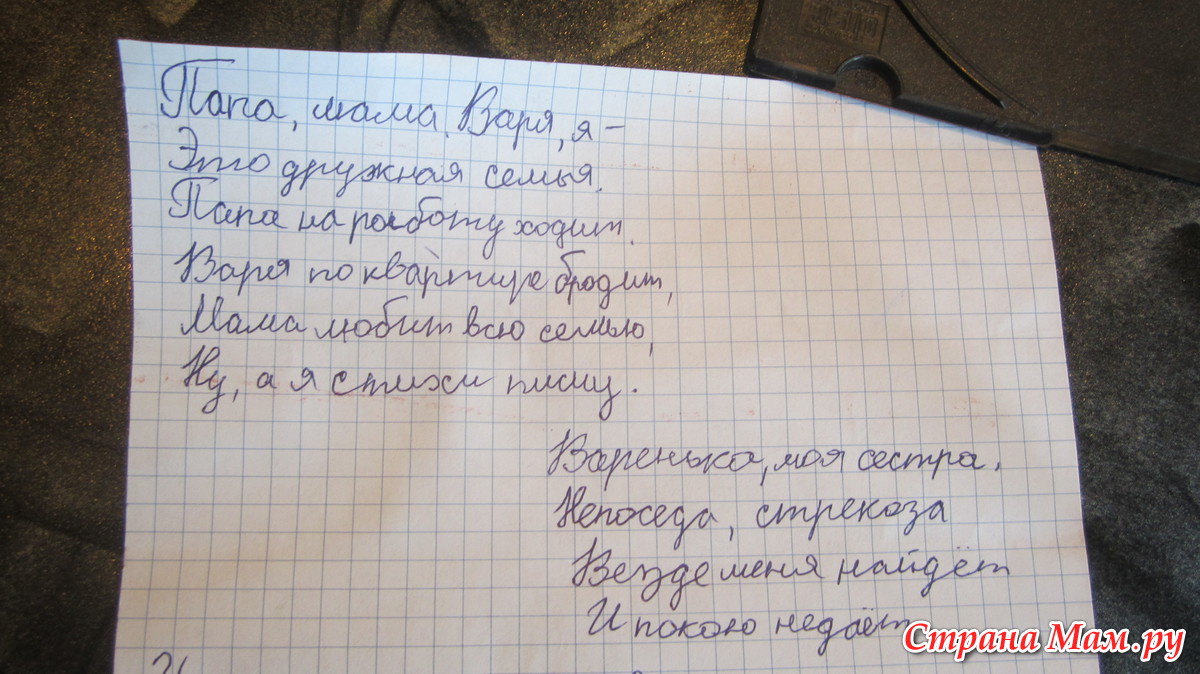 Папа, мама, Варя, я –
Это дружная семья.
Папа на работу ходит.
Варя по квартире бродит,
Мама любит всю семью,
Ну, а я стихи пишу.
Варенька, моя сестра,
Непоседа, стрекоза
Везде меня найдёт
И покою недаёт
Страна Мам.ру